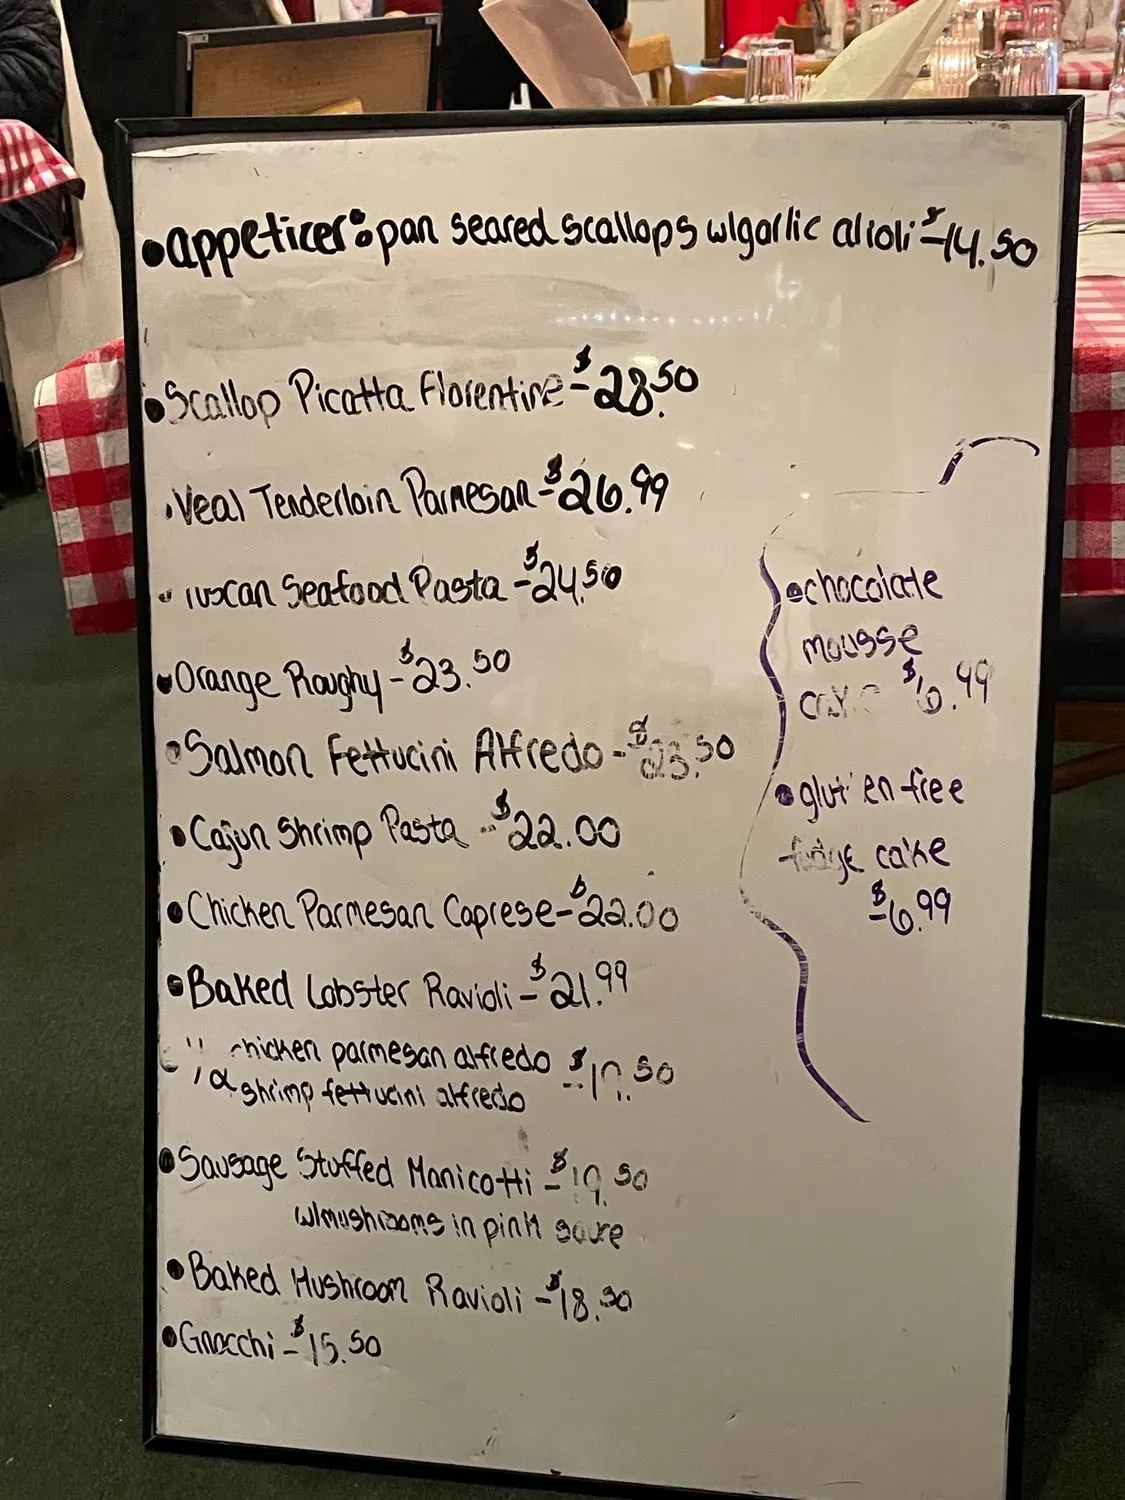 •appeticer: pan seared scallops w/garlic alioli - $14.50
•Scallop Picatta Florentine - $28.50
•Veal Tenderloin Parmesan - $26.99
•Tuscan Seafood Pasta - $24.50
•Orange Roughy - $23.50
•Salmon Fettucini Alfredo - $23.50
•Cajun Shrimp Pasta - $22.00
•Chicken Parmesan Caprese - $22.00
•Baked Lobster Ravioli - $21.99
chicken parmesan alfredo - $19.50
shrimp fettucini alfredo
•Sausage Stuffed Manicotti - $19.50
w/mushrooms in pink sauce
•Baked Mushroom Ravioli - $18.50
•Gnocchi - $15.50
•chocolate
mousse
cake $6.99
•gluten-free
fudge cake
$6.99